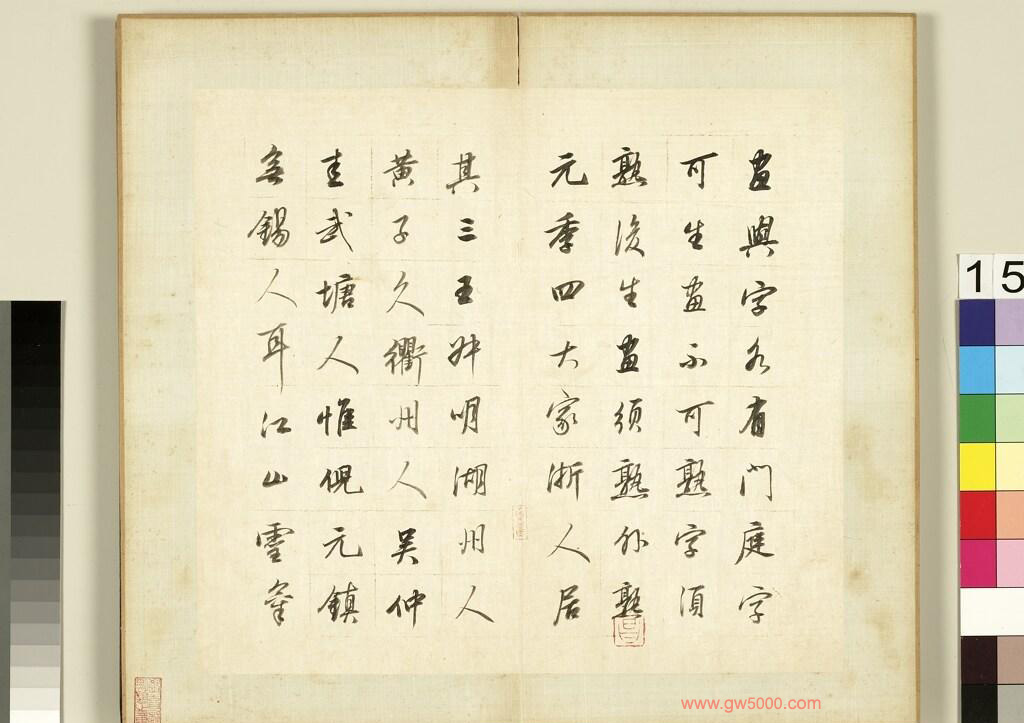 畫與字各有門庭字
可生畫不可熟字須
熟後生畫須熟外熟
元季四大家浙人居
其三王叔明湖州人
黃子久衢州人吳仲
圭武塘人惟倪元鎮
無錫人耳江山靈氣
15
www.gw5000.com